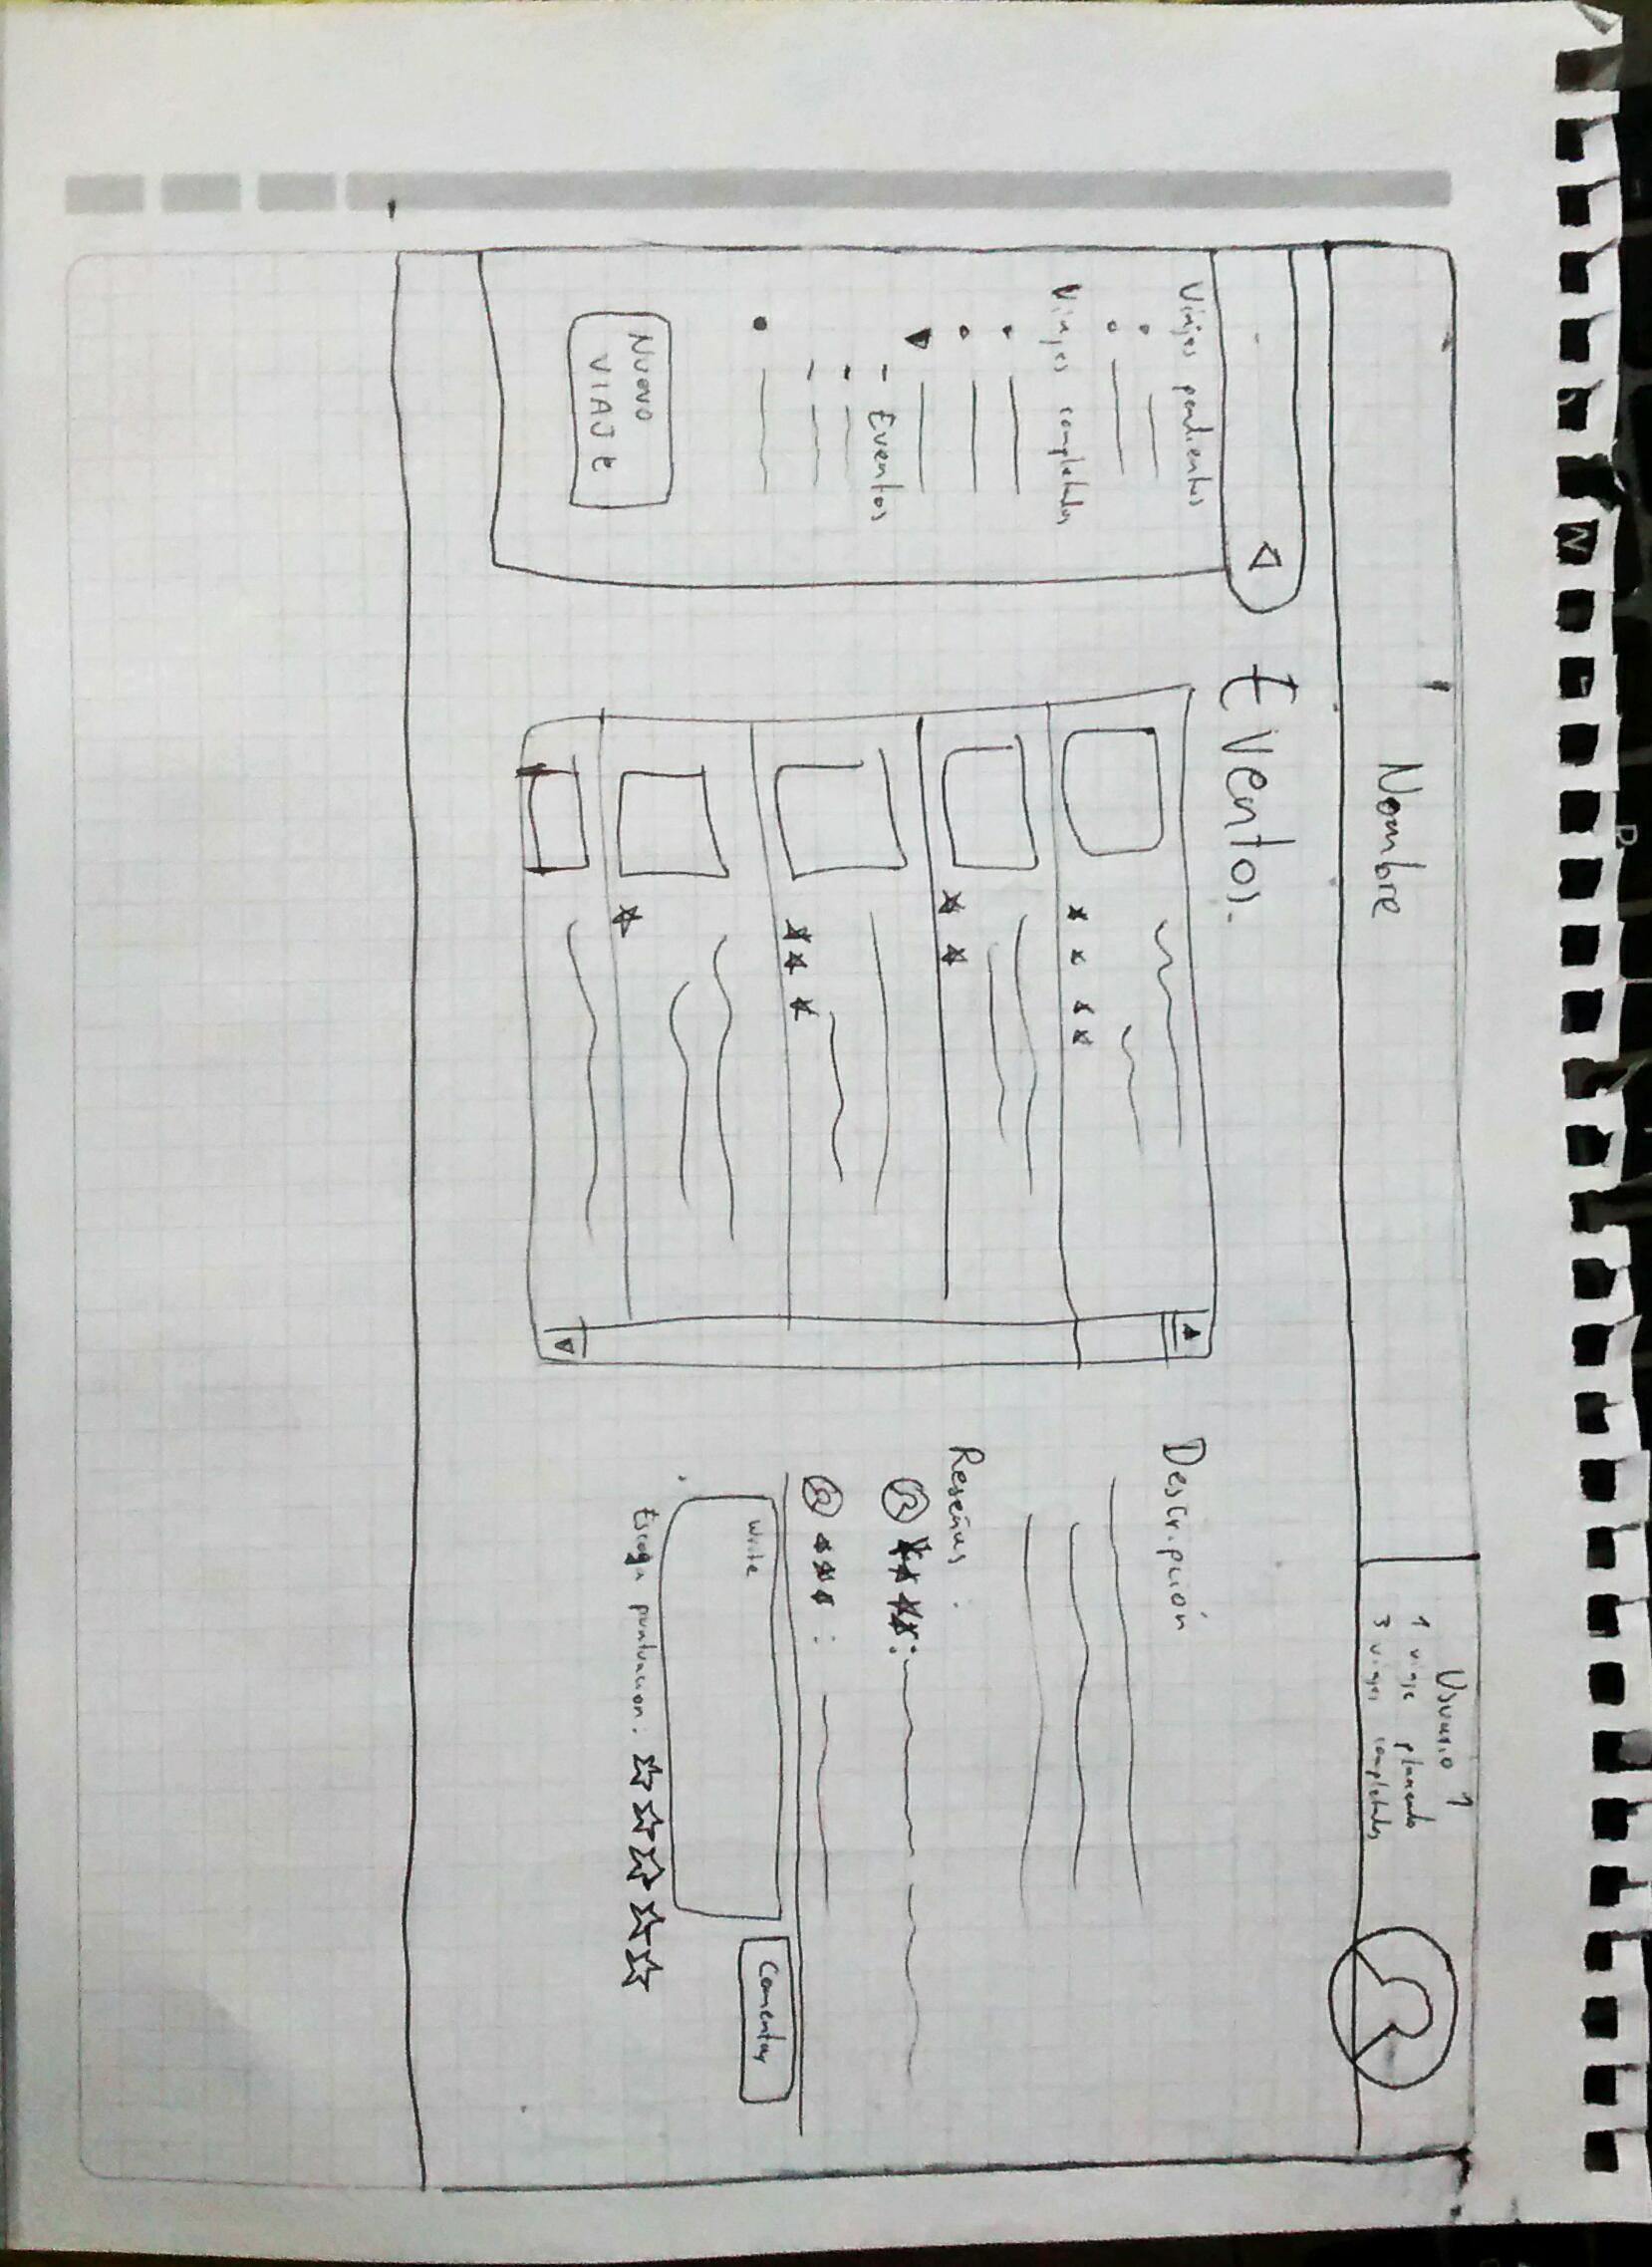 Nombre
Usuario 1
1 viaje planeado
3 viajes completados
Viajes pendientes
Viajes completados
- Eventos
NUEVO
VIAJE
Eventos.
Descripción
Reseñas:
Write
Comentar
Escoga puntuacion: